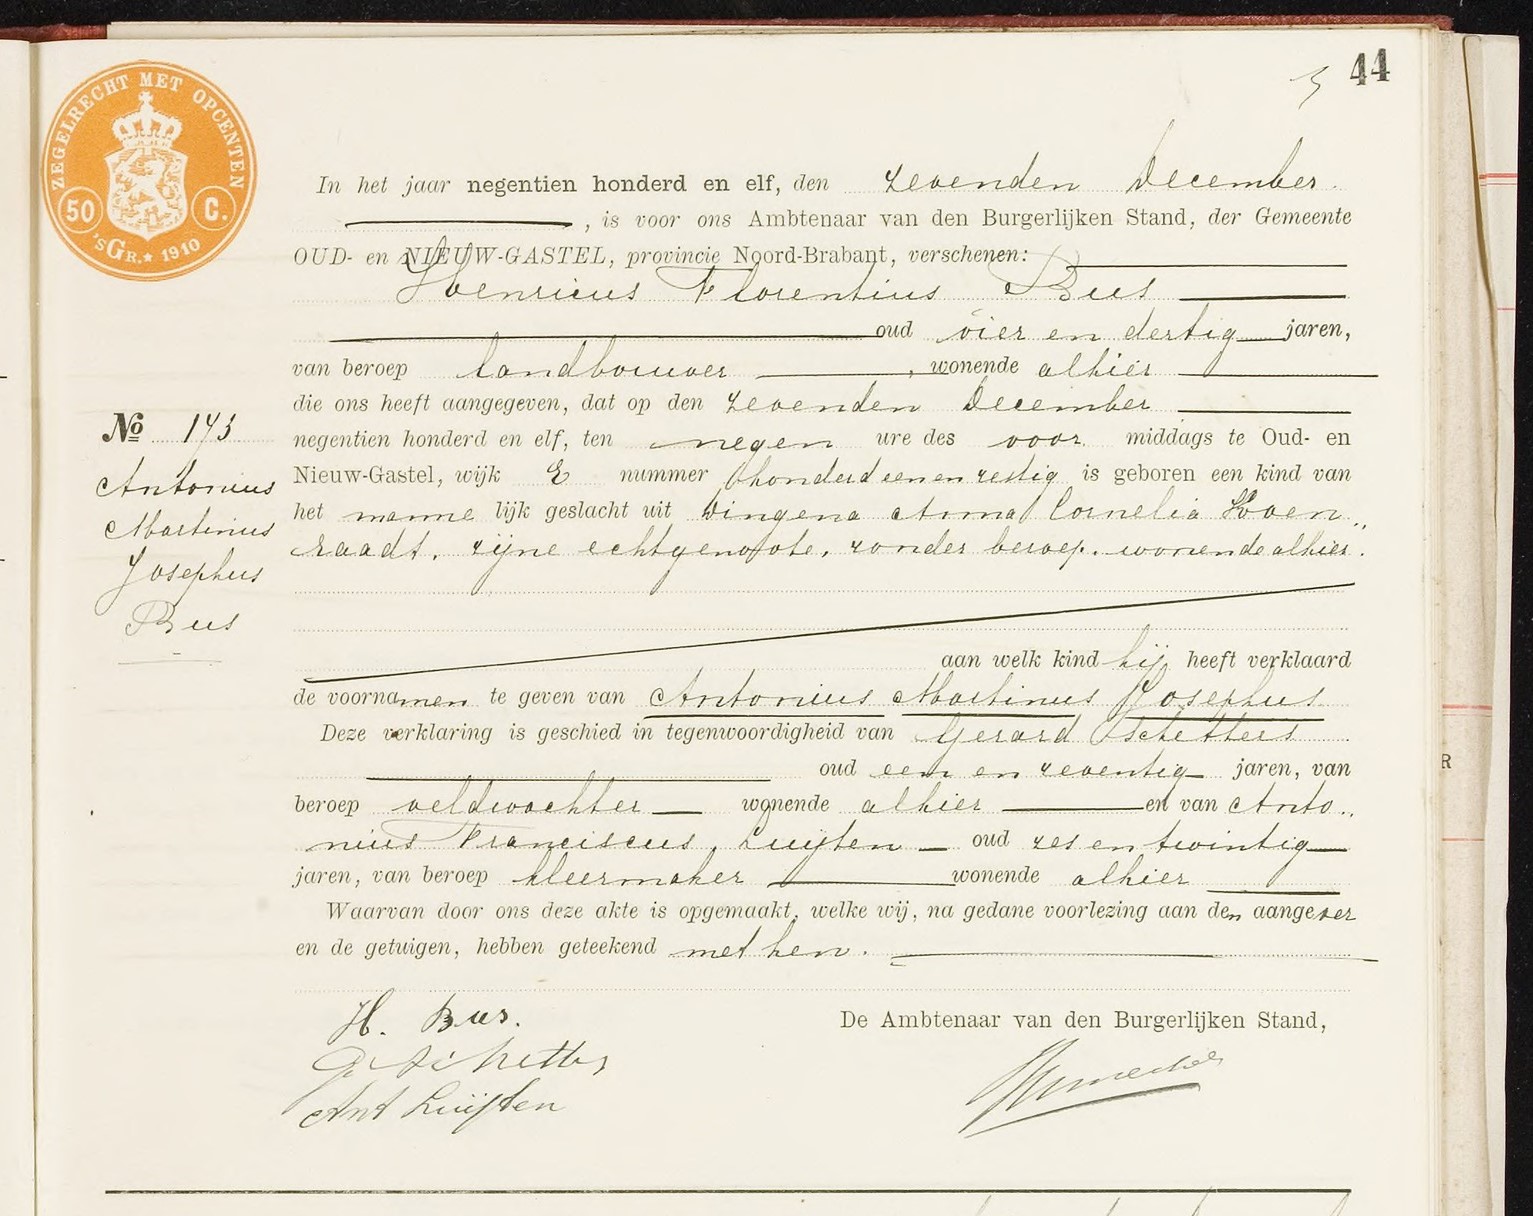 44
ZEGELRECHT MET OPCENTEN
50 C.
'sGR.★ 1910
In het jaar negentien honderd en elf, den zevenden December
, is voor ons Ambtenaar van den Burgerlijken Stand, der Gemeente
OUD- en NIEUW-GASTEL, provincie Noord-Brabant, verschenen:
Henricus Florentius Bus
oud vier en dertig jaren,
van beroep landbouwer, wonende alhier
die ons heeft aangegeven, dat op den zevenden December
negentien honderd en elf, ten negen ure des voor middags te Oud- en
Nieuw-Gastel, wijk E nummer honderd een en zestig is geboren een kind van
het manne lijk geslacht uit Dingena Anna Cornelia Hoen„
raadt, zijne echtgenoote, zonder beroep, wonende alhier.
aan welk kind hij heeft verklaard
de voornamen te geven van Antonius Martinus Josephus
Deze verklaring is geschied in tegenwoordigheid van Gerard Schetters
oud een en zeventig jaren, van
beroep veldwachter wonende alhier en van Anto„
nius Franciscus Luijten oud zes en twintig
jaren, van beroep kleermaker wonende alhier
Waarvan door ons deze akte is opgemaakt, welke wij, na gedane voorlezing aan den aangever
en de getuigen, hebben geteekend met hen.
No 173
Antonius
Martinus
Josephus
Bus
H. Bus.
G Schetters
Ant Luijten
De Ambtenaar van den Burgerlijken Stand,
R